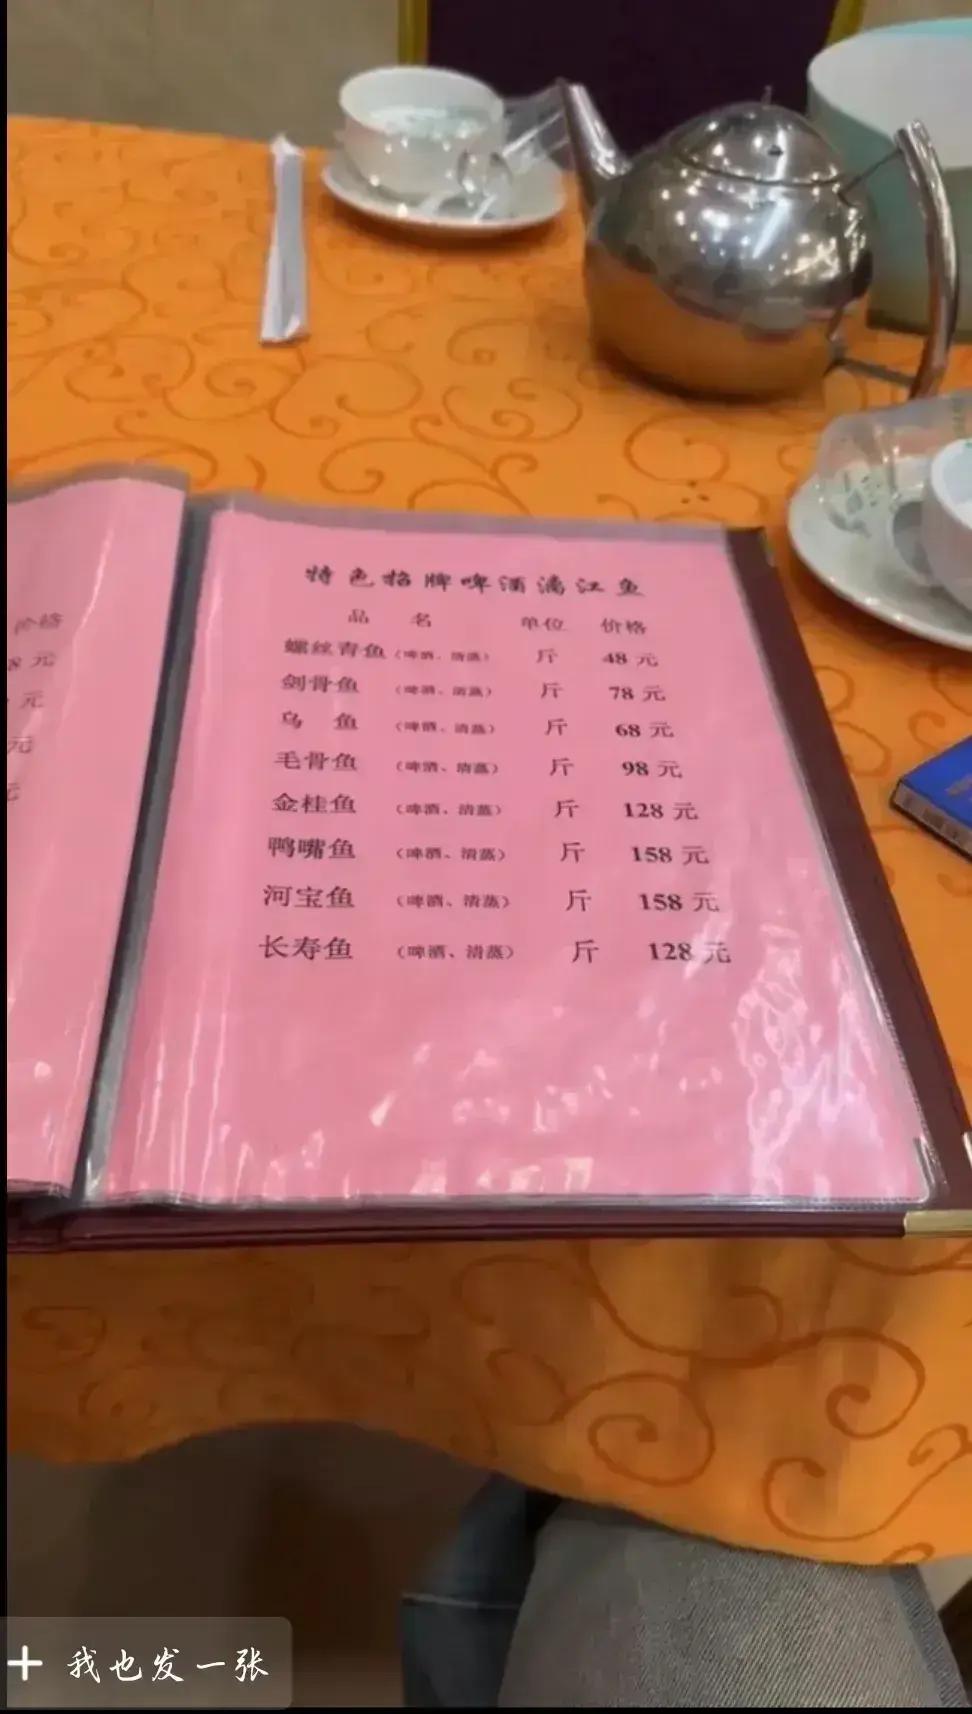 价格
8 元
元
元
元
特色招牌啤酒漓江鱼
品 名 单位 价格
螺丝青鱼（啤酒、清蒸） 斤 48 元
剑骨鱼 （啤酒、清蒸） 斤 78 元
乌 鱼 （啤酒、清蒸） 斤 68 元
毛骨鱼 （啤酒、清蒸） 斤 98 元
金桂鱼 （啤酒、清蒸） 斤 128 元
鸭嘴鱼 （啤酒、清蒸） 斤 158 元
河宝鱼 （啤酒、清蒸） 斤 158 元
长寿鱼 （啤酒、清蒸） 斤 128 元
+ 我也发一张